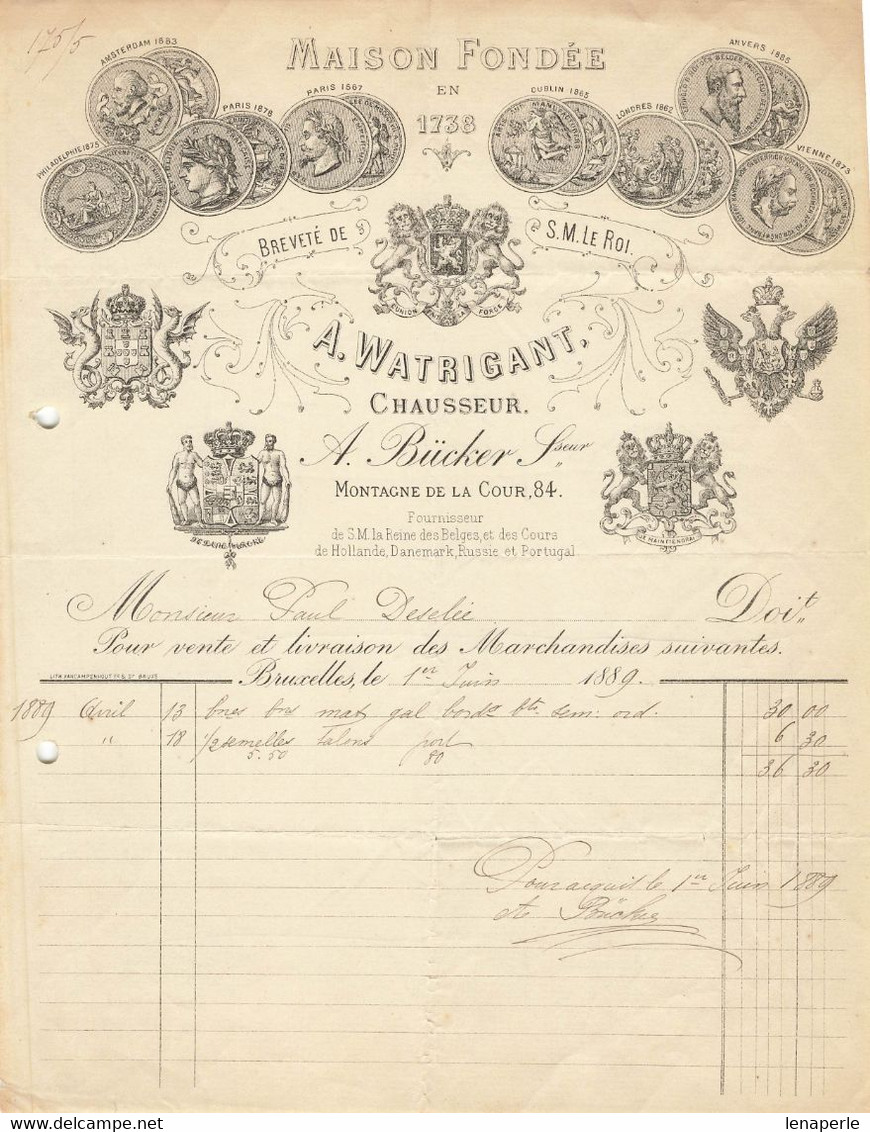 175/5
MAISON FONDÉE
EN
1738
AMSTERDAM 1883
PARIS 1867
DUBLIN 1865
ANVERS 1885
PHILADELPHIE 1875
PARIS 1878
LONDRES 1862
VIENNE 1873
BREVETÉ DE S.M. LE ROI.
L'UNION FAIT LA FORCE
A. WATRIGANT,
CHAUSSEUR.
A. Bücker Sseur
MONTAGNE DE LA COUR, 84.
JE MAINTIENDRAI
Fournisseur
de S.M. la Reine des Belges, et des Cours
de Hollande, Danemark, Russie et Portugal
Monsieur Paul Deselée Doit
Pour vente et livraison des Marchandises suivantes.
LITH. VANCAMPENHOUT FR. & Sr BRUX.
Bruxelles, le 1er Juin 1889.
1889 Avril 13 bnes bns mat gal bordé bte sem: ord. 30 00
" 18 1/2 semelles talons port 6 30
5.50 80
36 30
Pour acquit le 1er Juin 1889
A. Bücker
lenaperle